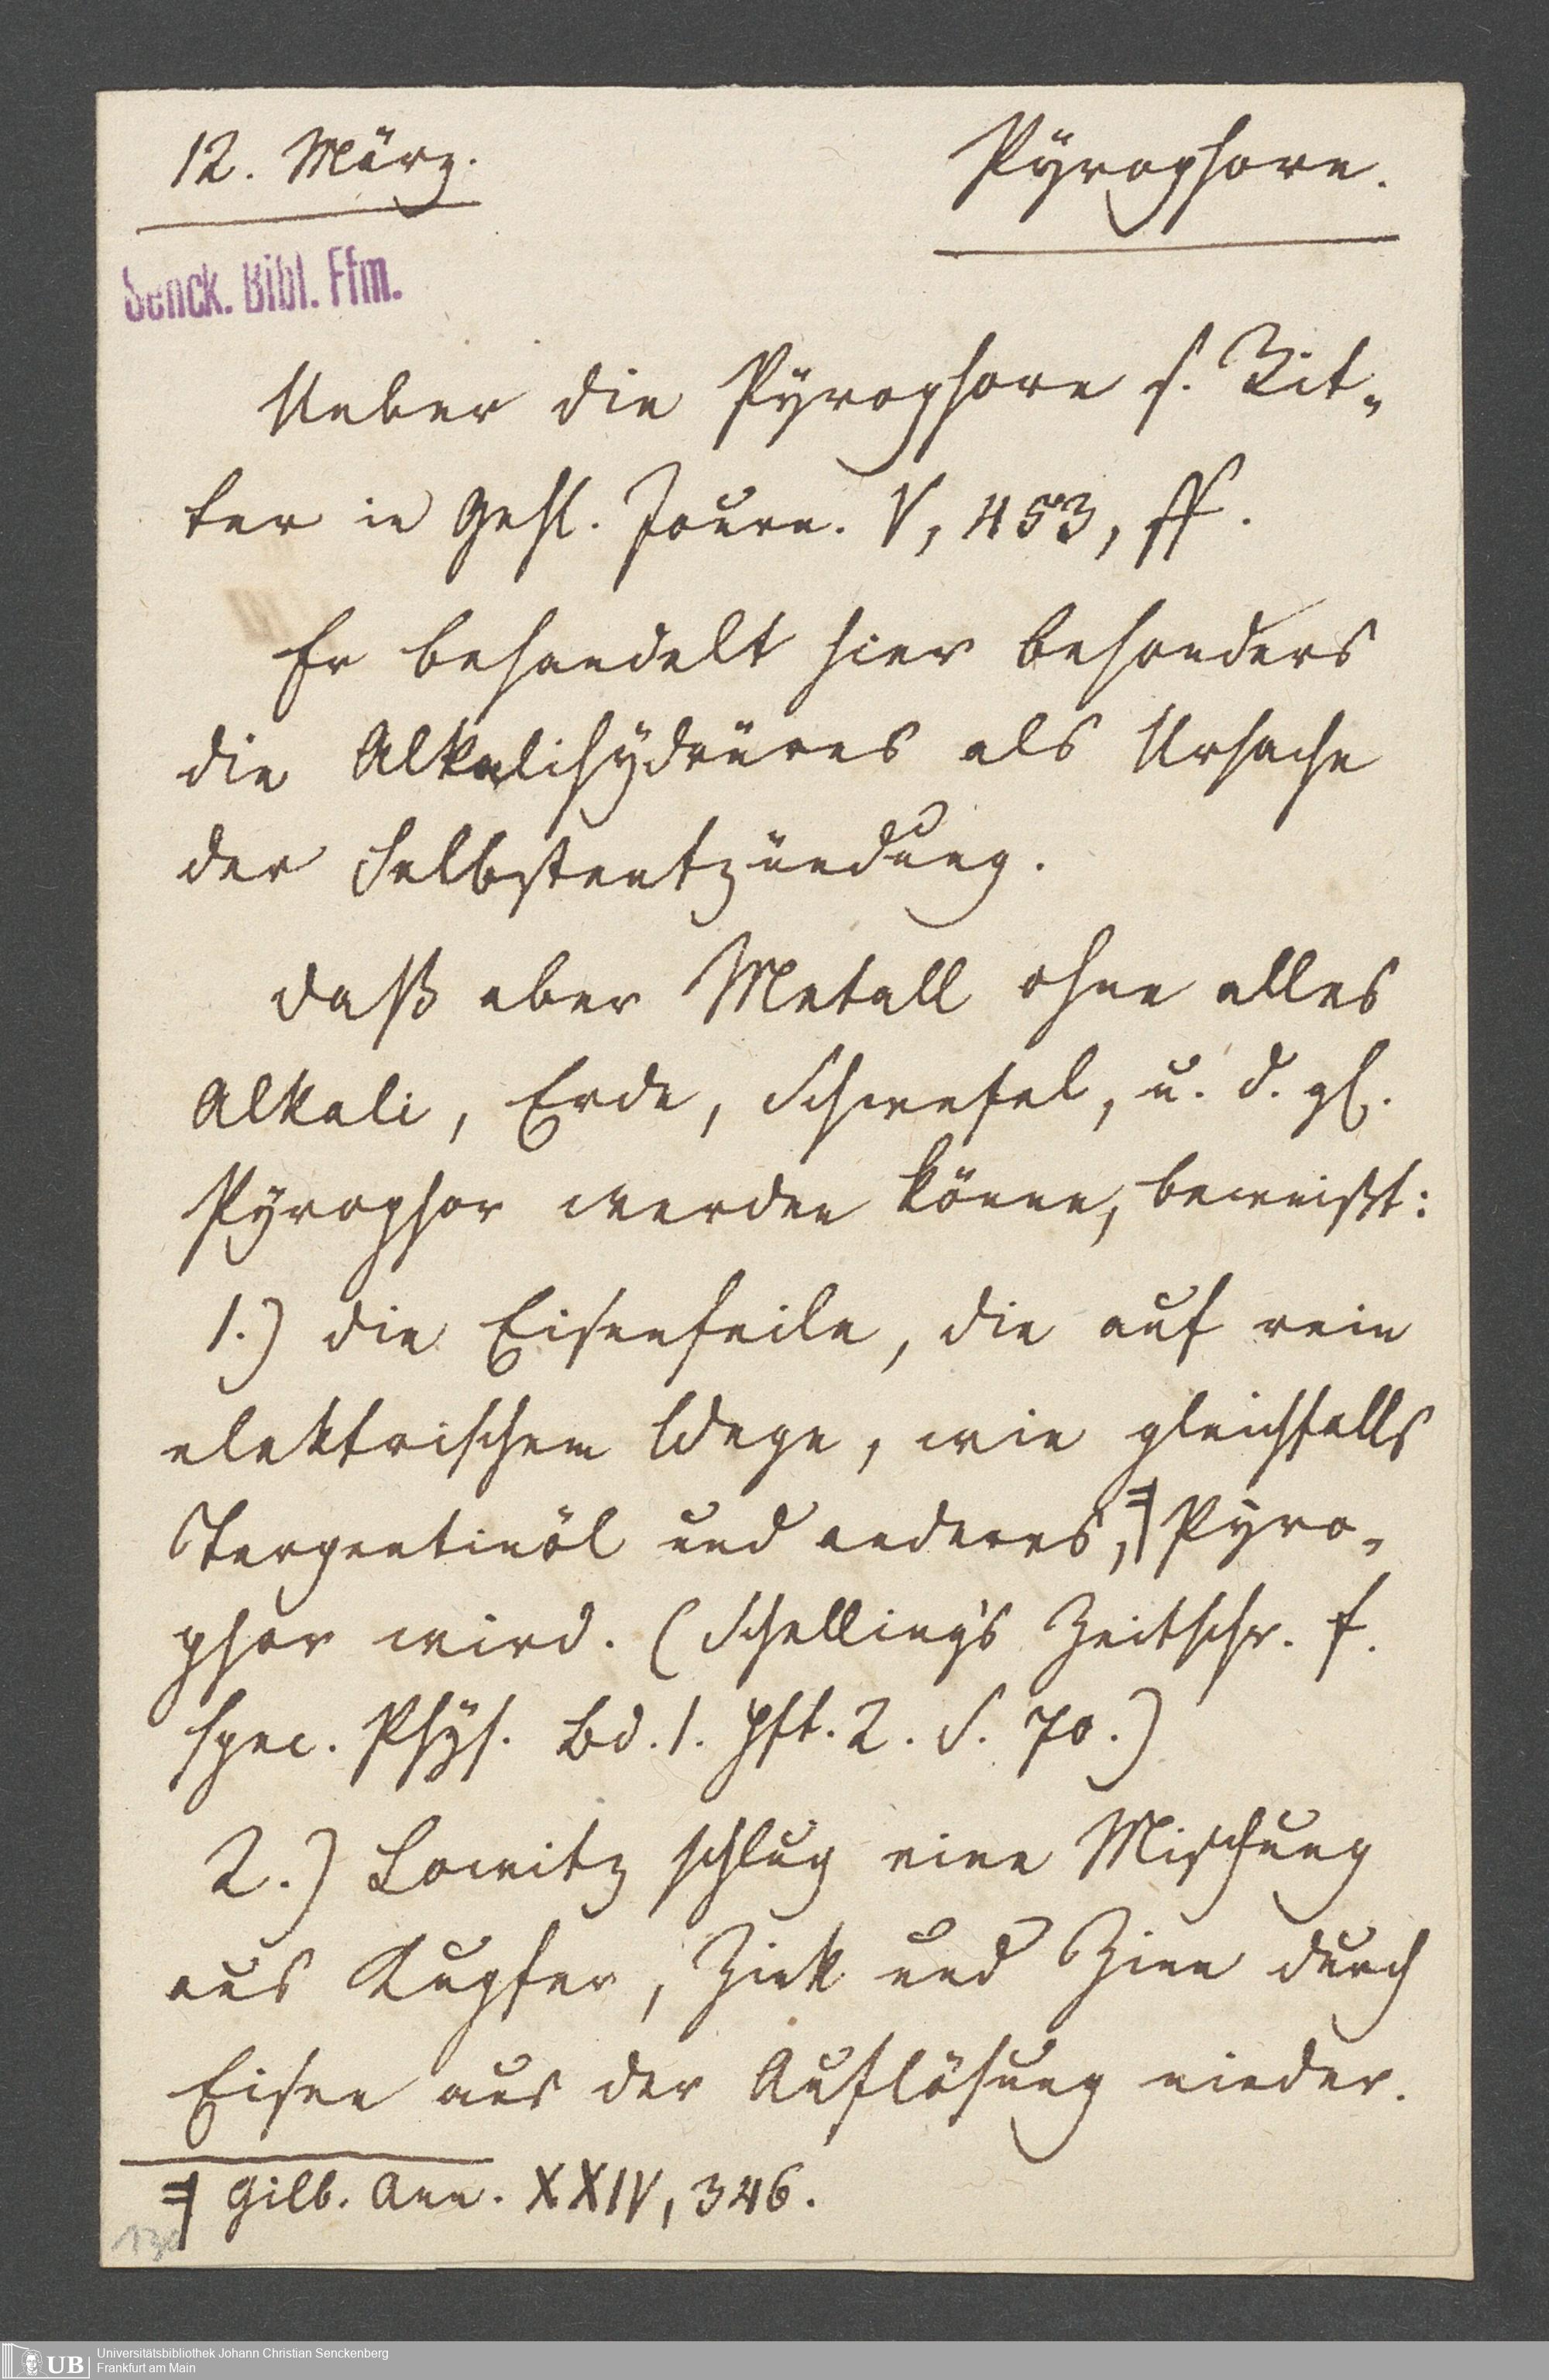 12. März.
Pÿrophore.
Senck. Bibl. Ffm.
Ueber die Pÿrophore s. Rit-
ter in Gehl. Journ. V, 453, ff.
Er behandelt hier besonders
die Alkalihÿdrüres als Ursache
der Selbstentzündung.
Daß aber Metall ohne alles
Alkali, Erde, Schwefel, u. d. gl.
Pÿrophor werden könne, beweißt:
1.) die Eisenfeile, die auf rein
elektrischem Wege, wie gleichfalls
Terpentinöl und anderes,╡ Pÿro-
phor wird. (Schelling's Zeitschr. f.
spec. Phÿs. Bd. 1. Hft. 2. S. 70.)
2.) Lowitz schlug eine Mischung
aus Kupfer, Zink und Zinn durch
Eisen aus der Auflösung nieder.
╡ Gilb. Ann. XXIV, 346.
130
UB
Universitätsbibliothek Johann Christian Senckenberg
Frankfurt am Main